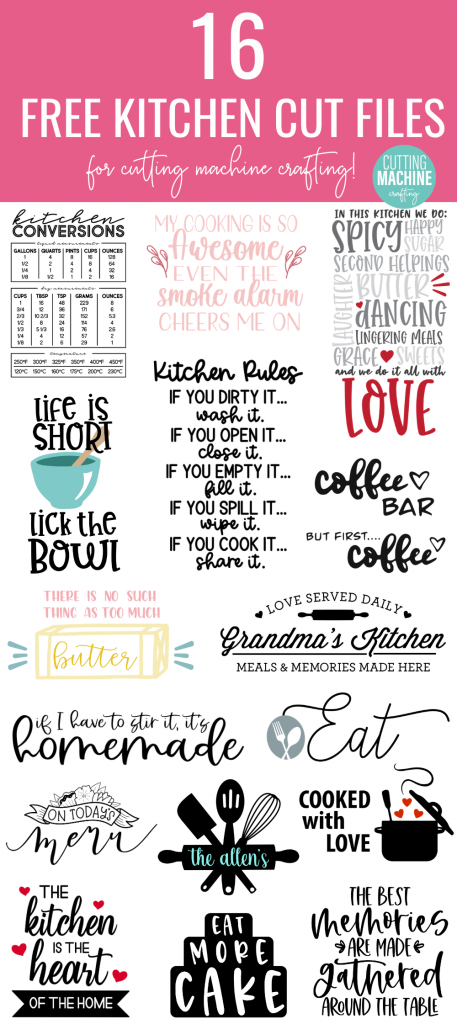 16
FREE KITCHEN CUT FILES
for cutting machine crafting!
CUTTING
MACHINE
crafting
kitchen
CONVERSIONS
liquid conversions
GALLONS QUARTS PINTS CUPS OUNCES
1 4 8 16 128
1/2 2 4 8 64
1/4 1 2 4 32
1/2 1 2 16
dry conversions
CUPS TBSP TSP GRAMS OUNCES
1 16 48 229 8
3/4 12 36 171 6
2/3 10 2/3 32 152 5
1/2 8 24 114 4
1/3 5 1/3 16 76
1/4 4 12 57 2
temperature
250°F 300°F 350°F 400°F 450°F
120°C 150°C 160°C 200°C 230°C
MY COOKING IS SO
Awesome
EVEN THE
smoke alarm
CHEERS ME ON
IN THIS KITCHEN WE DO:
SPICY HAPPY
SUGAR
SECOND HELPINGS
LAUGHTER
BUTTER
DANCING
LINGERING MEALS
GRACE SWEETS
and we do it all with
LOVE
Kitchen Rules
IF YOU DIRTY IT...
wash it.
IF YOU OPEN IT...
close it.
IF YOU EMPTY IT...
fill it.
IF YOU SPILL IT...
wipe it.
IF YOU COOK IT...
share it.
life is
SHORT
lick the
BOWL
coffee
BAR
BUT FIRST....
coffee
THERE IS NO SUCH
THING AS TOO MUCH
butter
LOVE SERVED DAILY
Grandma's Kitchen
MEALS & MEMORIES MADE HERE
if I have to stir it, it's
homemade
Eat
ON TODAY'S
menu
the allen's
COOKED
with
LOVE
THE
kitchen
IS THE
heart
OF THE HOME
EAT
MORE
CAKE
THE BEST
memories
ARE MADE
gathered
AROUND THE TABLE